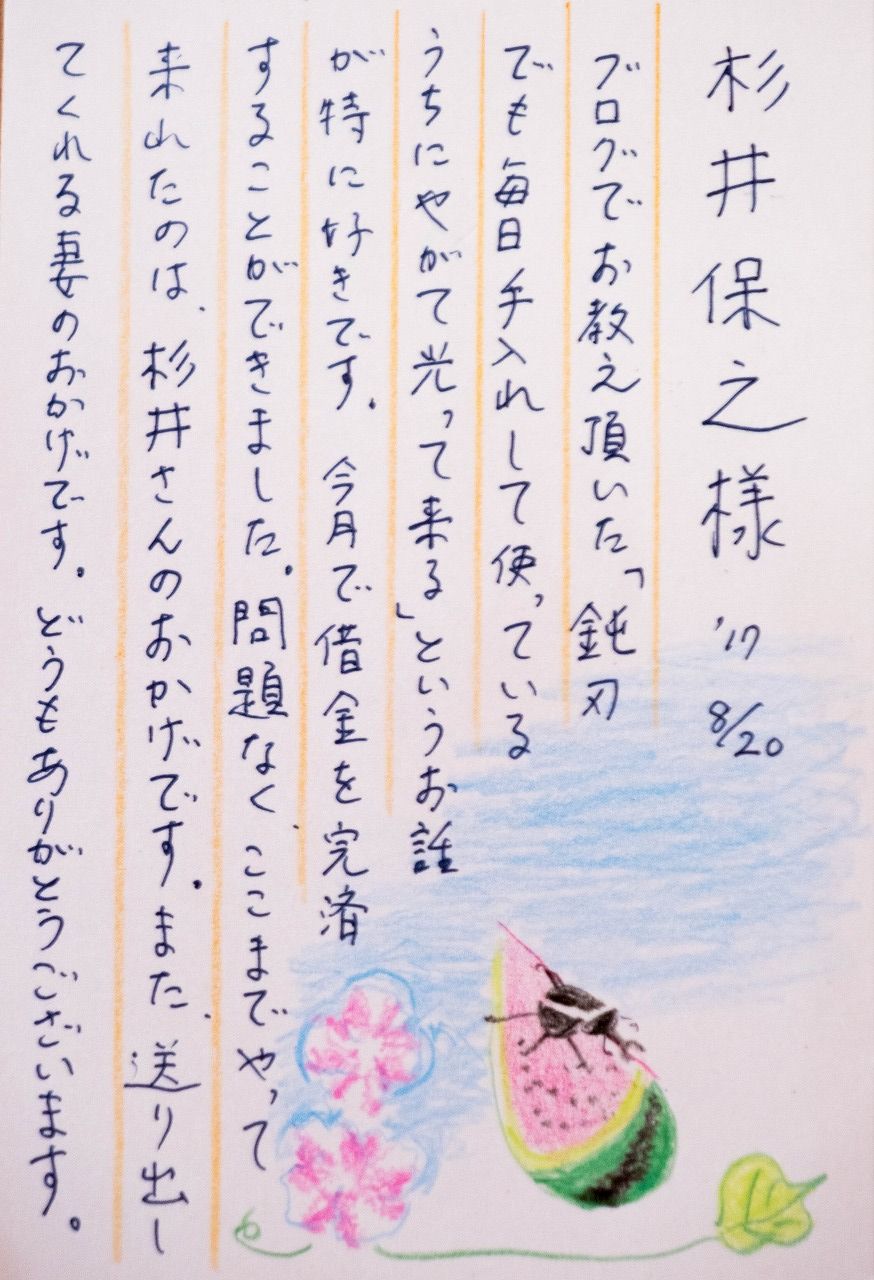 杉井保之様 '17 8/20
ブログでお教え頂いた「鈍刃
でも毎日手入れして使っている
うちにやがて光って来る」というお話
が特に好きです。今月で借金を完済
することができました。問題なく、ここまでやって
来れたのは、杉井さんのおかげです。また、送り出し
てくれる妻のおかげです。どうもありがとうございます。